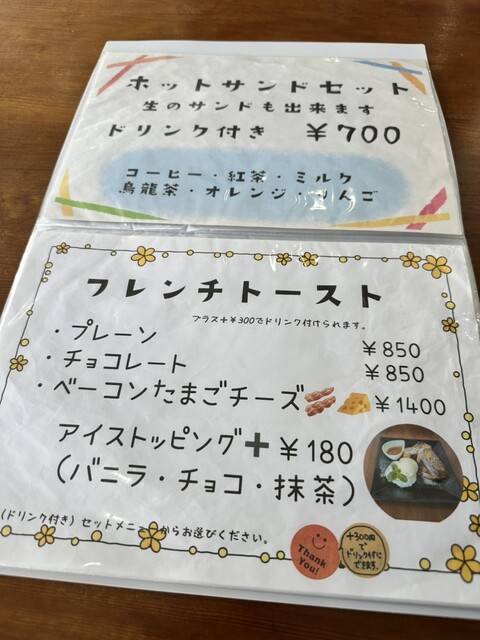 ホットサンドセット
生のサンドも出来ます
ドリンク付き ￥700
コーヒー・紅茶・ミルク
烏龍茶・オレンジ・りんご
フレンチトースト
プラス+￥300でドリンク付けられます。
・プレーン ￥850
・チョコレート ￥850
・ベーコンたまごチーズ ￥1400
アイストッピング+￥180
(バニラ・チョコ・抹茶)
(ドリンク付き) セットメニューからお選びください。
Thank You!
+300円
で
ドリンク付に
できます。